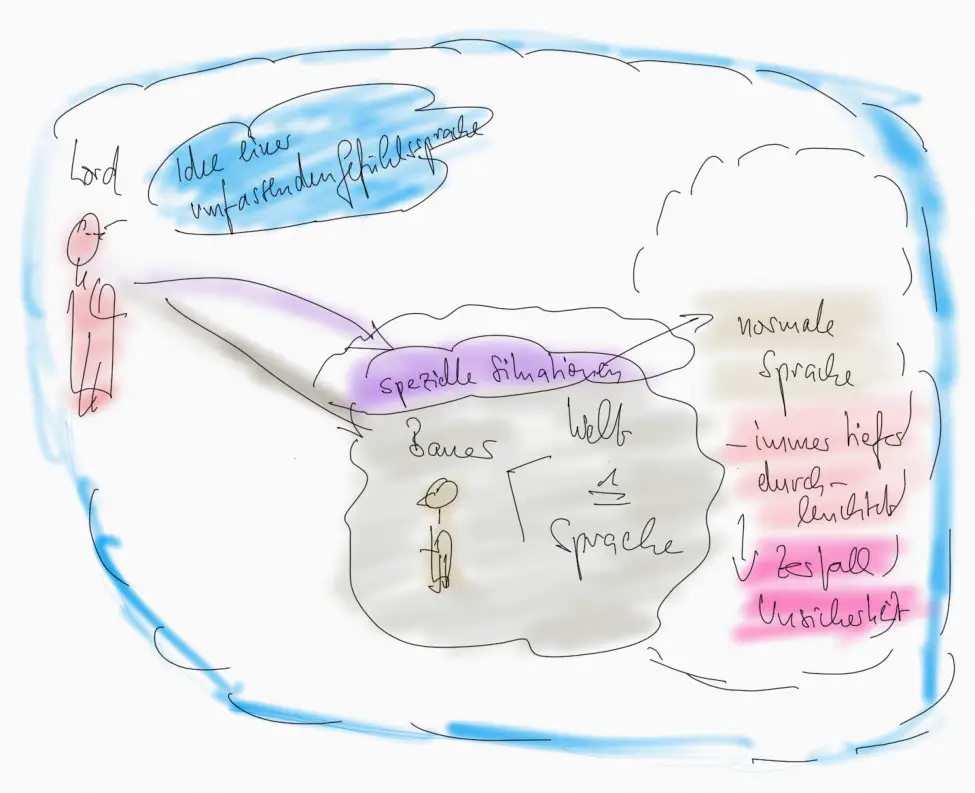 Lord
Idee einer
umfassenden Gefühlssprache
spezielle Situationen
Bauer
Welt
≙
Sprache
normale
Sprache
- immer tiefer
durch-
leuchtet
↓ Zerfall
Unsicherheit